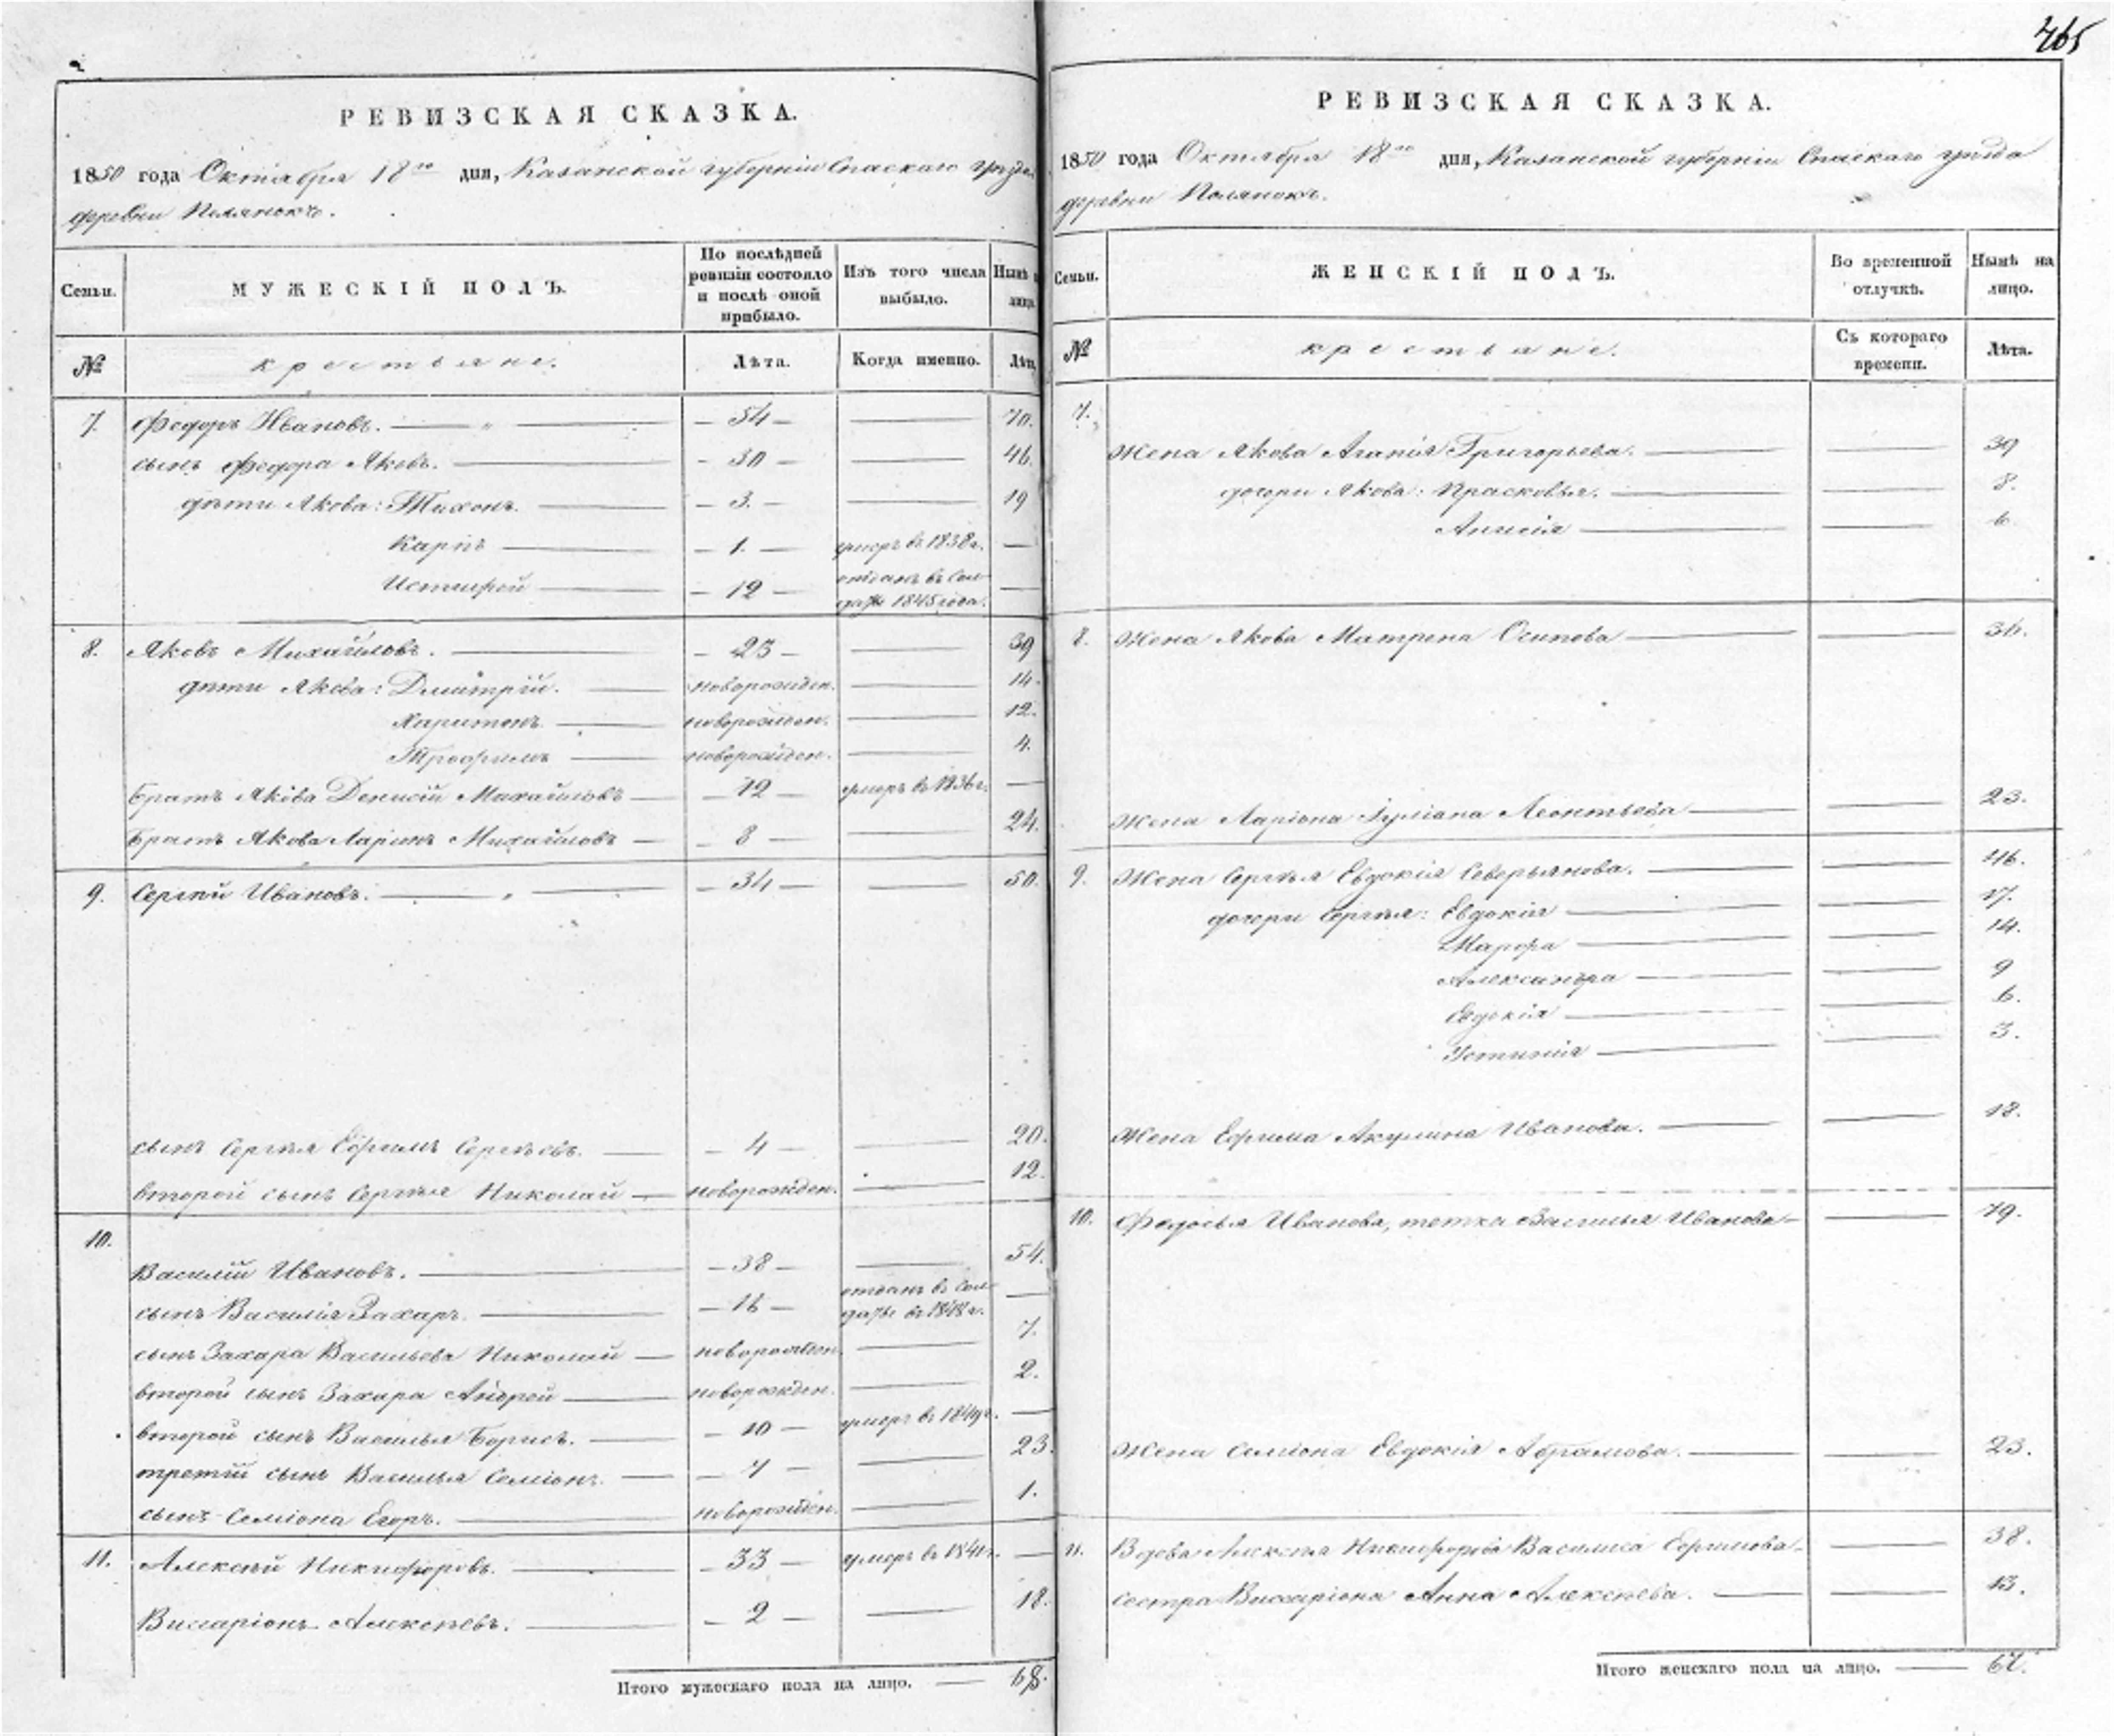 465
РЕВИЗСКАЯ СКАЗКА.
1850 года Октября 18го дня, Казанской губерніи Спаскаго уѣзда
деревни Полянокъ.
Семьи. МУЖЕСКІЙ ПОЛЪ. По послѣдней ревизіи состояло и послѣ оной прибыло. Изъ того числа выбыло. Нынѣ на лицо.
№ крестьяне. Лѣта. Когда именно. Лѣта.
7. Федоръ Ивановъ. — 54 — — 70.
сынъ Федора Яковъ. — 30 — — 46.
дѣти Якова: Тихонъ. — 3. — — 19
Карпъ — 1. — умеръ въ 1838г. —
— 12 — отданъ въ солдаты 1845 года. —
8. Яковъ Михайловъ. — 23 — — 39
дѣти Якова: Дмитрій. — новорожден. — 14.
Харитонъ. — новорожден. — 12.
Трофимъ — новорожден. — 4.
Братъ Якова Денисій Михайловъ — 12 — умеръ въ 1836г. —
Братъ Якова Ларіонъ Михайловъ — 8 — — 24.
9. Сергѣй Ивановъ. — 34 — — 50.
сынъ Сергѣя Ефримъ Сергѣевъ. — 4 — — 20.
второй сынъ Сергѣя Николай — новорожден. — 12.
10.
Василій Ивановъ. — 38 — — 54.
сынъ Василія Захаръ. — 16 — отданъ въ солдаты въ 1848г. —
сынъ Захара Васильева Николай — новорожден. — 7.
второй сынъ Захара Андрей — новорожден. — 2.
второй сынъ Василья Борисъ. — 10 — умеръ въ 1849г. —
третій сынъ Василья Семіонъ. — 7 — — 23.
сынъ Семіона Егоръ. — новорожден. — 1.
11. Алексѣй Никифоровъ. — 33 — умеръ въ 1841г. —
Висаріонъ Алексѣевъ. — 2 — — 18.
Итого мужескаго пола на лицо. — 68.
РЕВИЗСКАЯ СКАЗКА.
1850 года Октября 18го дня, Казанской губерніи Спаскаго уѣзда
деревни Полянокъ.
Семьи. ЖЕНСКІЙ ПОЛЪ. Во временной отлучкѣ. Нынѣ на лицо.
№ крестьяне. Съ котораго времени. Лѣта.
7.
Жена Якова Агапія Григорьева. — — 39
дочери Якова: Прасковья. — — 8.
— — 6
8. Жена Якова Матрена Осипова — — 36.
Жена Ларіона Іуліана Леонтьева — — 23.
9. Жена Сергѣя Евдокія Северьянова. — — 46.
дочери Сергѣя: Евдокія — — 17.
Марфа — — 14.
Александра — — 9
Евдокія — — 6.
Устинія — — 3.
Жена Ефрима Акулина Иванова. — — 18.
10. Федосья Иванова, тетка Василья Иванова — — 79.
Жена Семіона Евдокія Абрамова. — — 23.
11. Вдова Алексѣя Никифорова Василиса Ефримова. — 38.
сестра Висаріона Анна Алексѣева. — — 13.
Итого женскаго пола на лицо. —